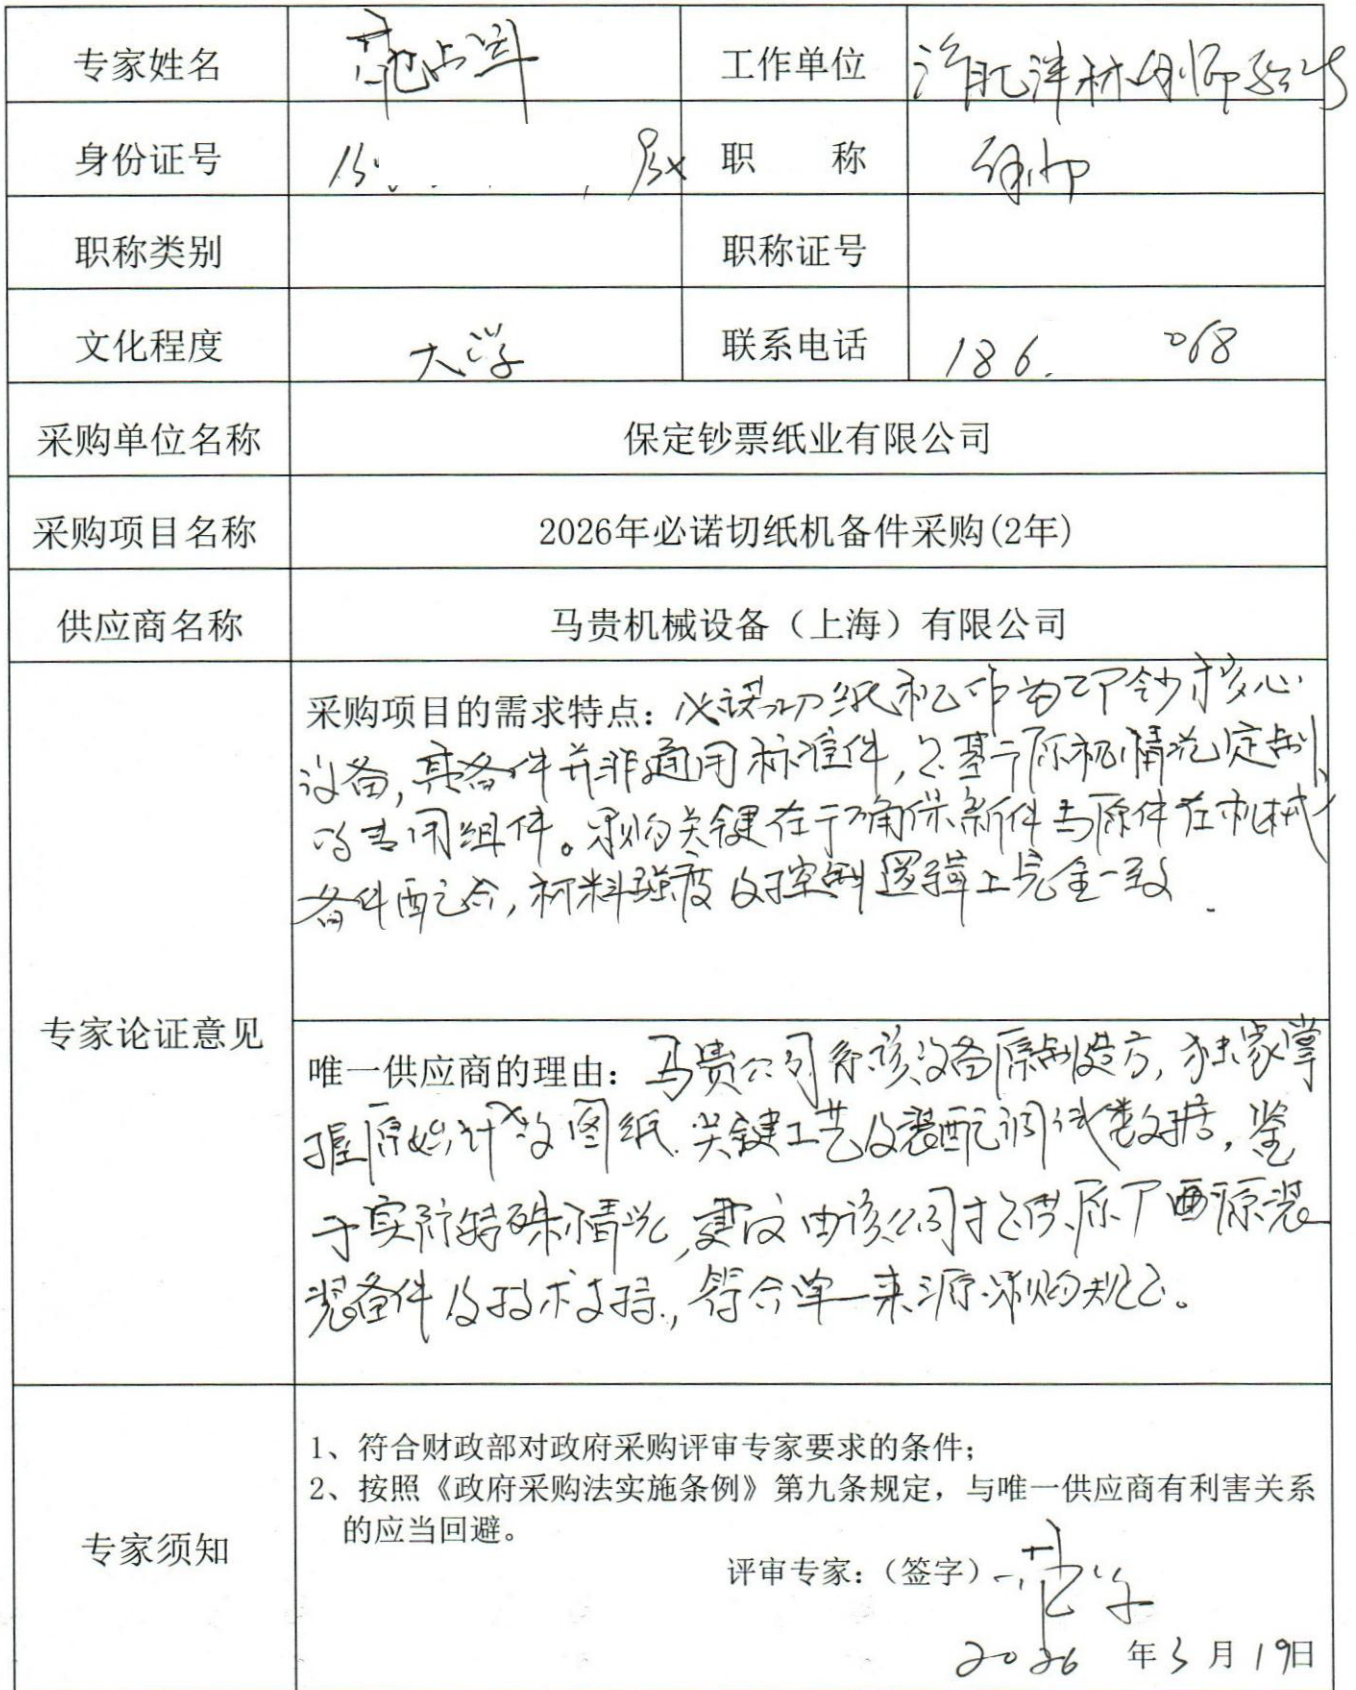 专家姓名 范占军 工作单位 律师
身份证号 13 职 称 律师
职称类别 职称证号
文化程度 大学 联系电话 186. 068
采购单位名称 保定钞票纸业有限公司
采购项目名称 2026年必诺切纸机备件采购(2年)
供应商名称 马贵机械设备（上海）有限公司
专家论证意见
采购项目的需求特点：必诺切纸机作为印钞核心
设备,其备件并非通用标准件,是基于原机情况定制
的专用组件。采购关键在于确保新件与原件在机械
备件配合,材料强度及控制逻辑上完全一致.
唯一供应商的理由：马贵公司系该设备原制造方,独家掌
握原始计数图纸.关键工艺及装配调试数据,鉴
于实际特殊情况,建议由该公司提供原厂原装
备件及技术支持,符合单一来源采购规定。
专家须知
1、符合财政部对政府采购评审专家要求的条件；
2、按照《政府采购法实施条例》第九条规定，与唯一供应商有利害关系
的应当回避。
评审专家：（签字）
2026 年3月19日